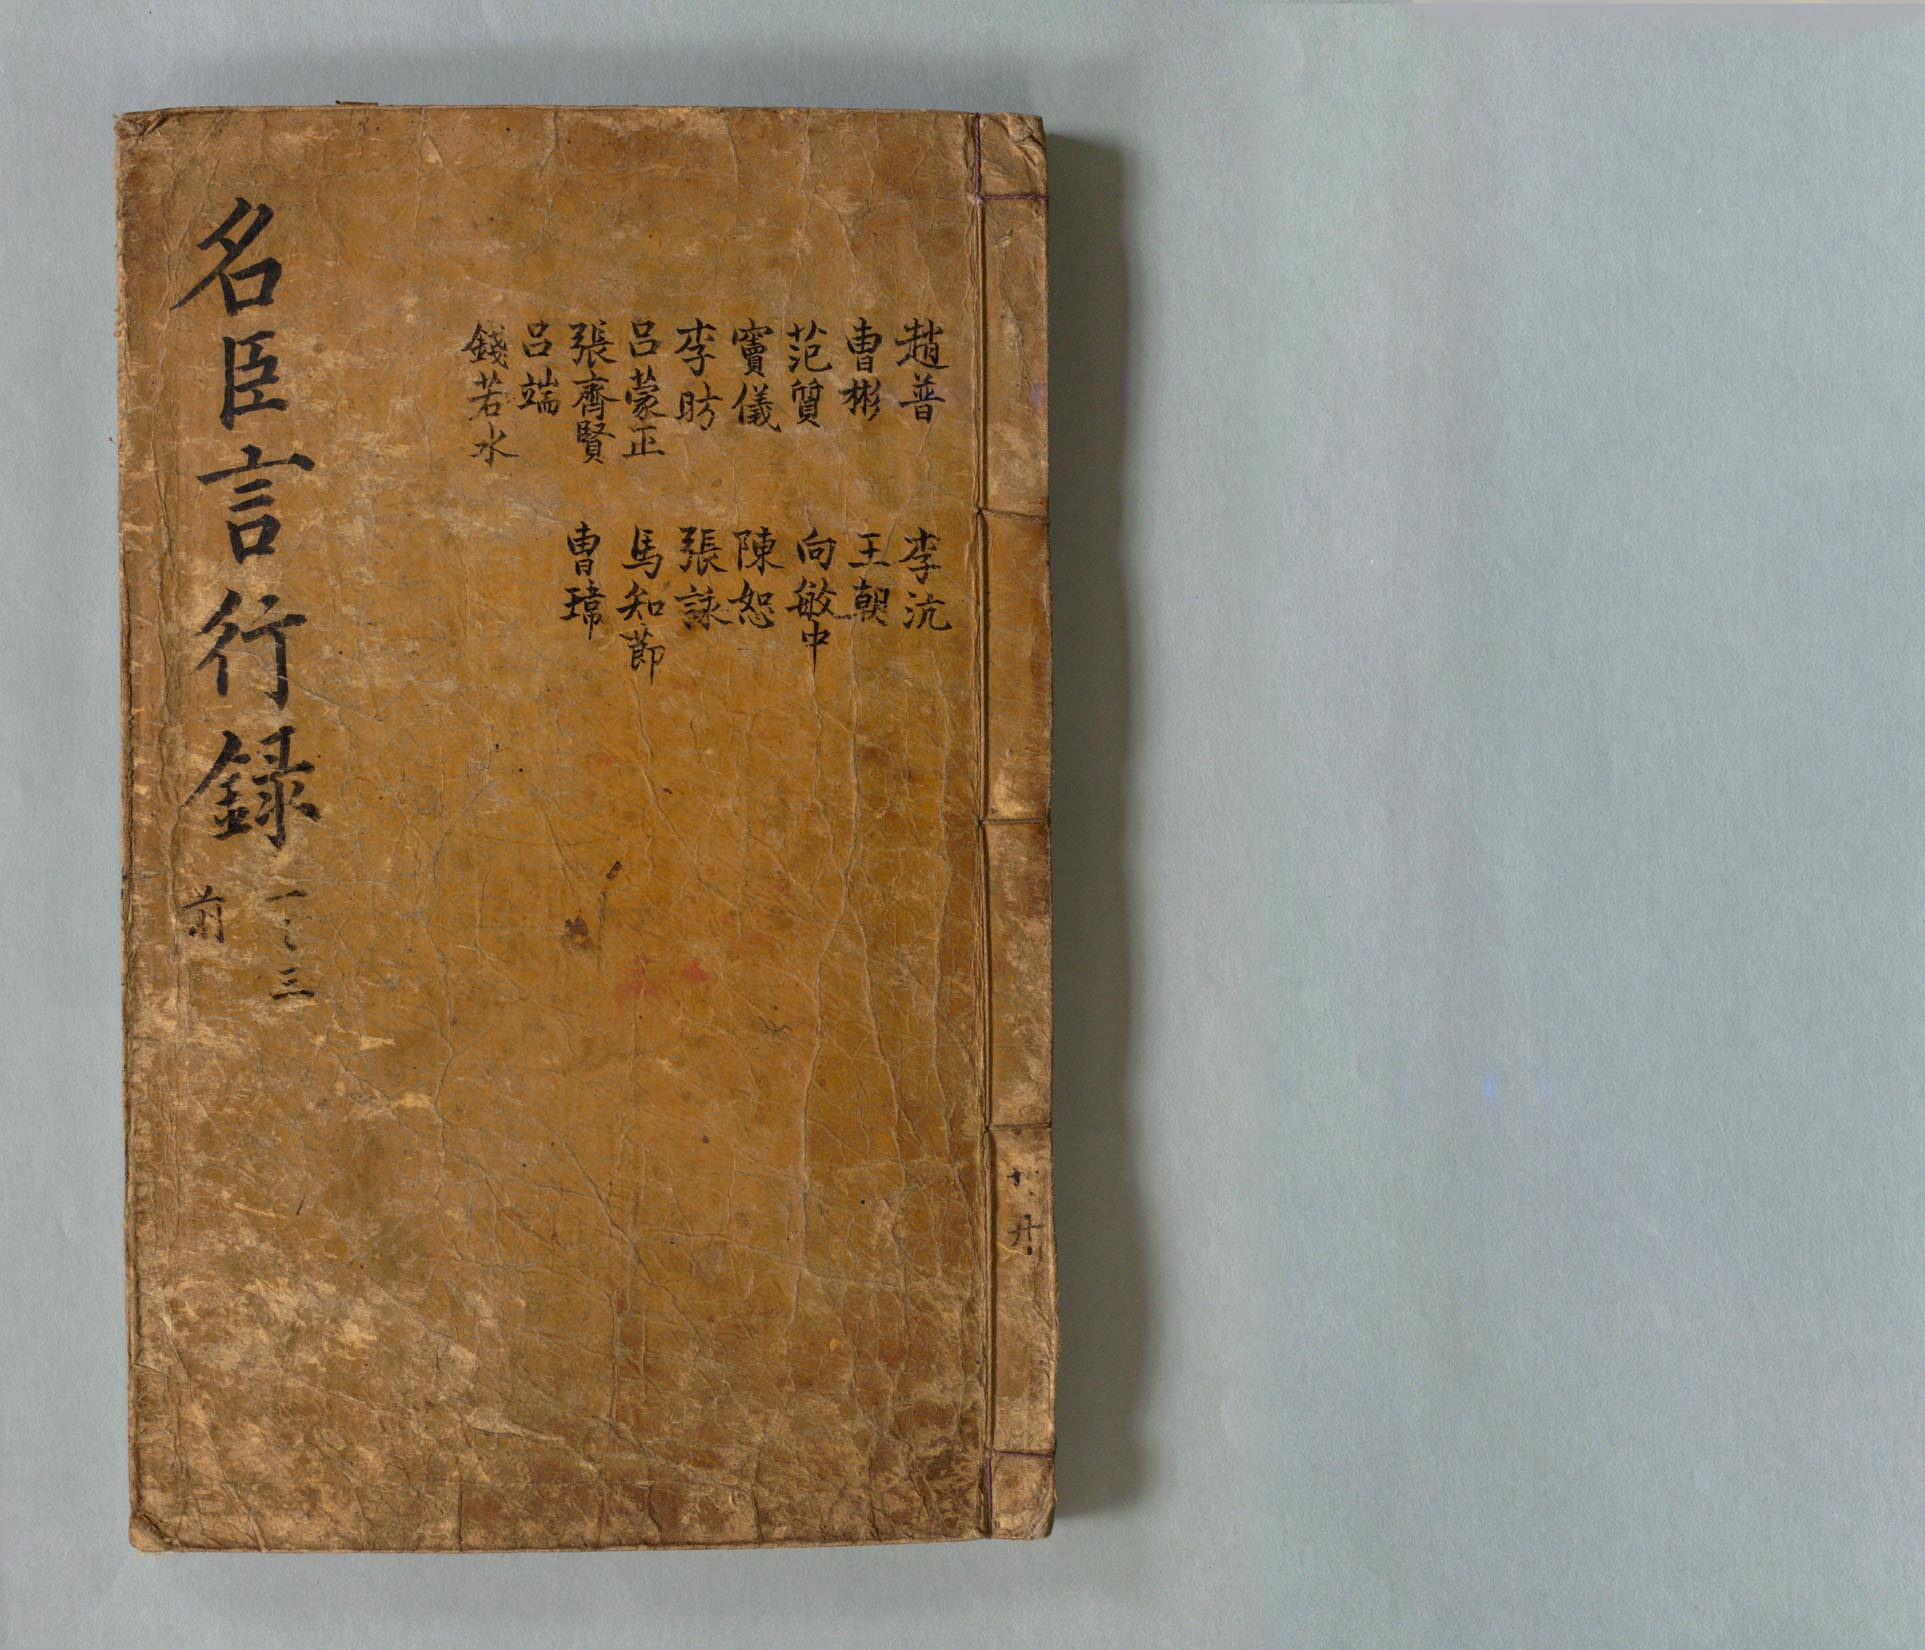 趙普
曺彬
范質
竇儀
李昉
呂蒙正
張齊賢
呂端
錢若水
李沆
王朝
向敏中
陳恕
張詠
馬知節
曺瑋
名臣言行録
一之三
前